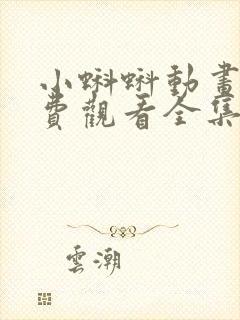 小蝌蝌動畫
費觀看全集
雲潮